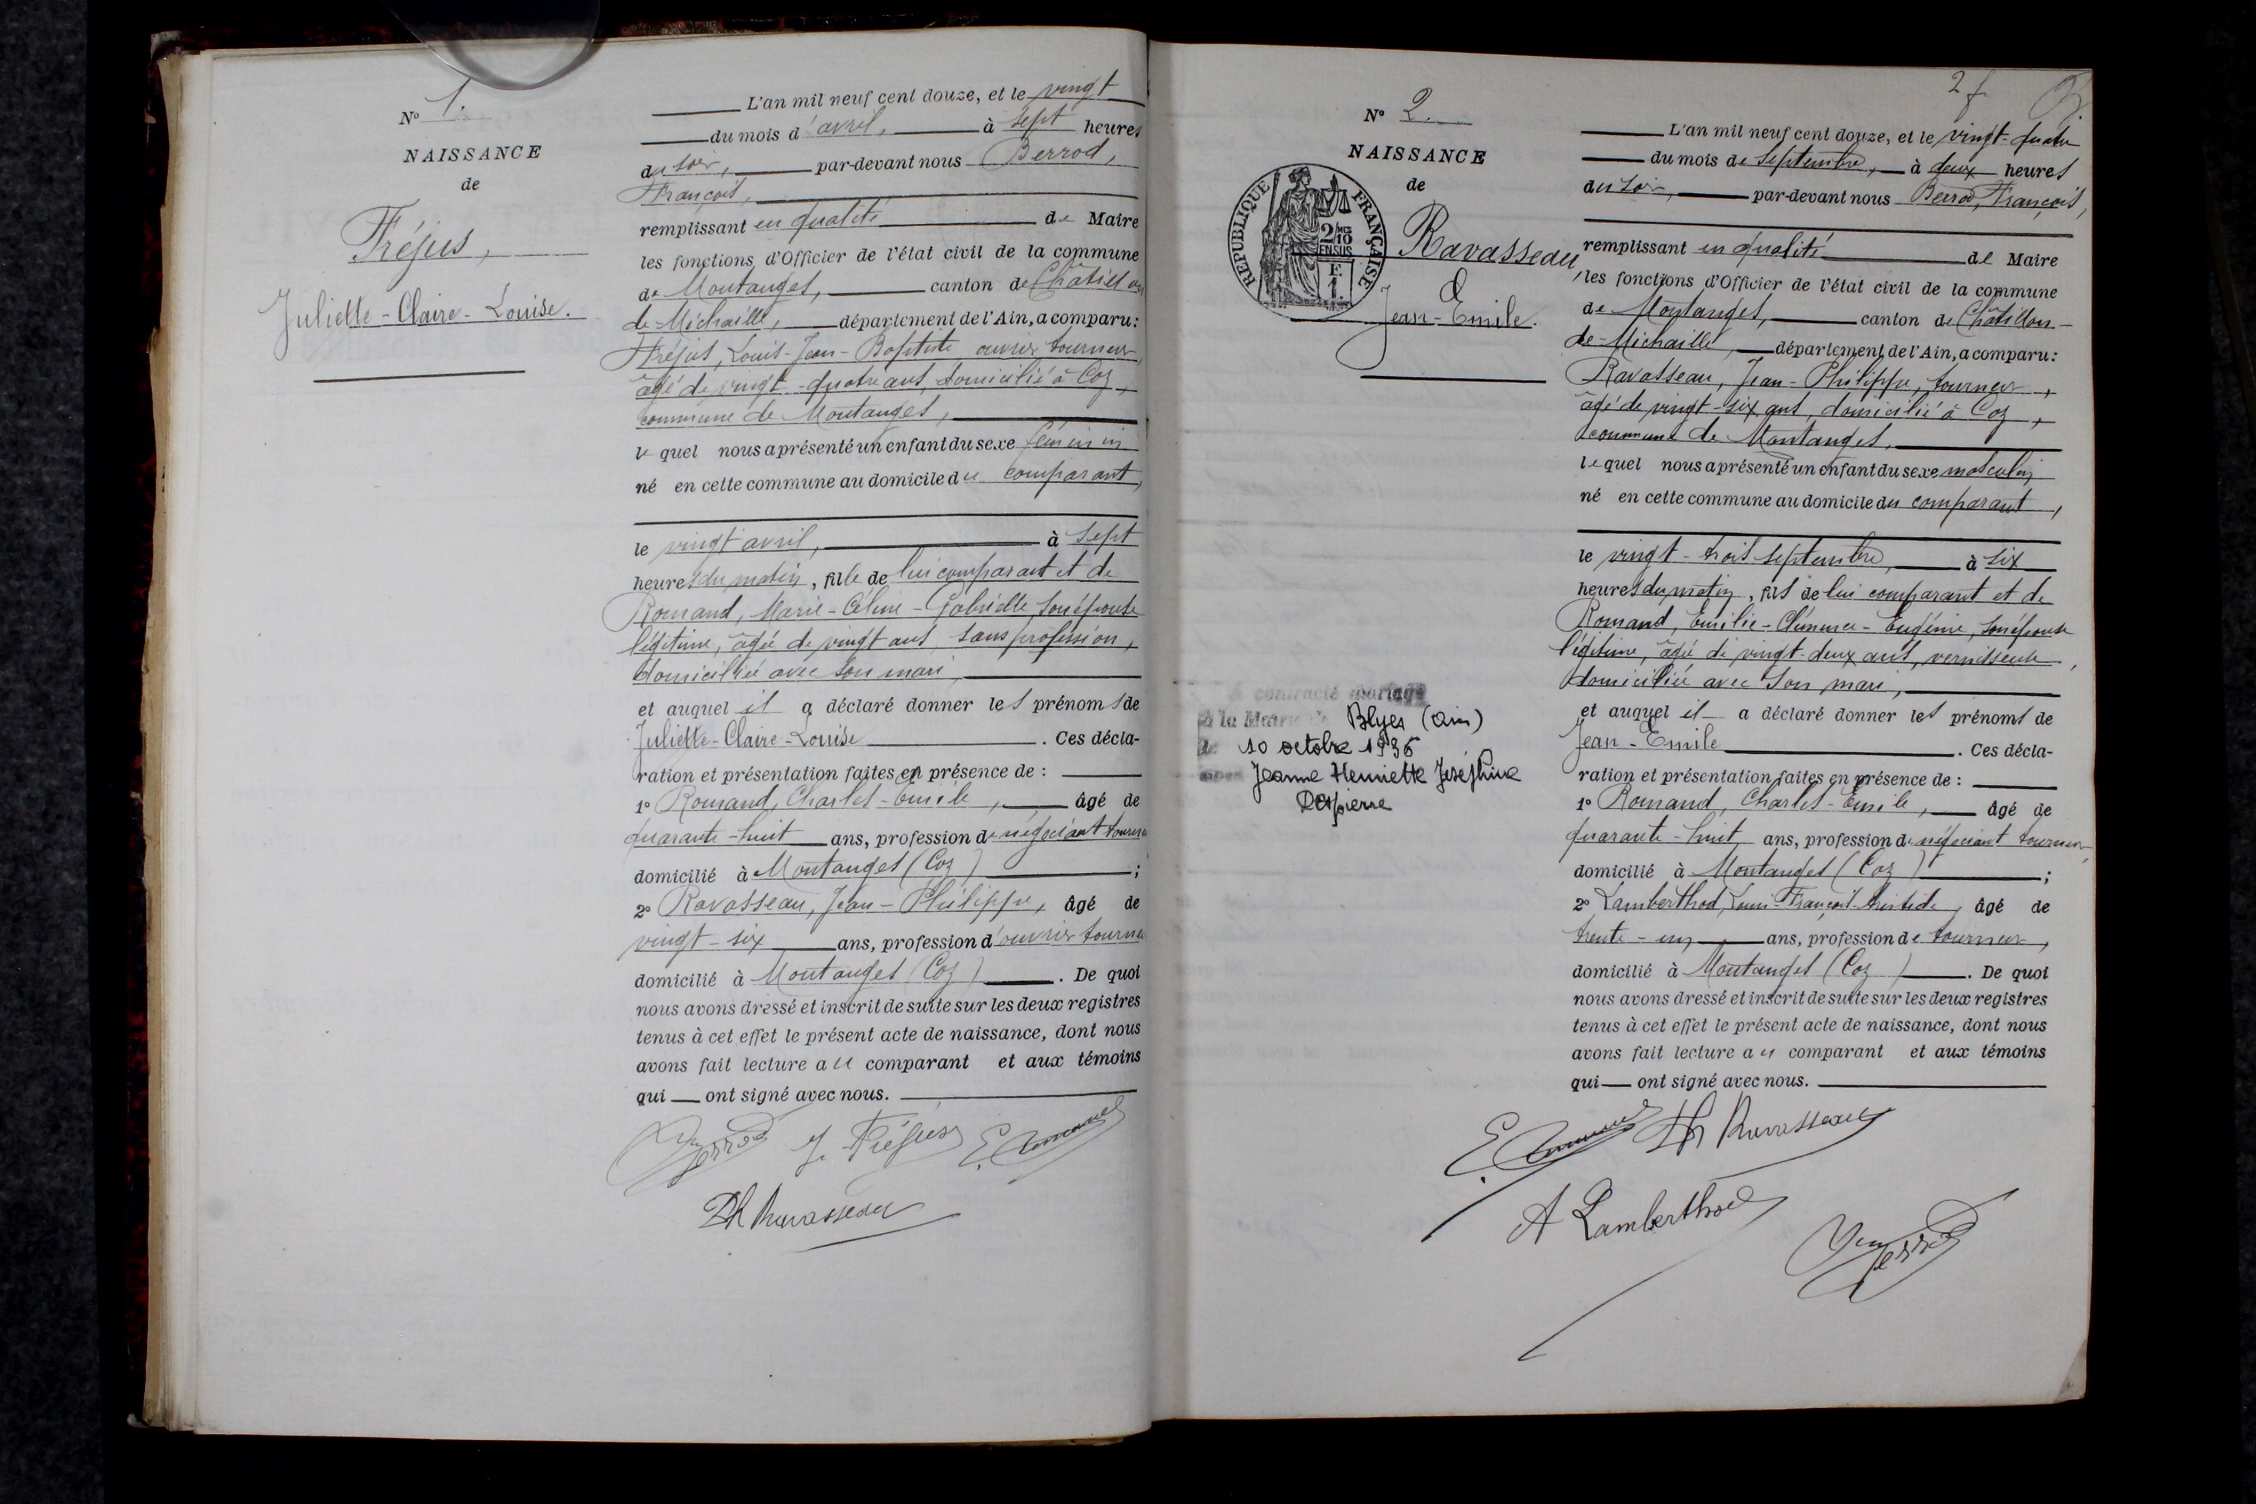 N° 1.
NAISSANCE
de
Fréjus,
Juliette-Claire-Louise.
L'an mil neuf cent douze, et le vingt
du mois d'avril, à sept heures
du soir, par-devant nous Berrod,
François,
remplissant en qualité de Maire
les fonctions d'Officier de l'état civil de la commune
de Montanges, canton de Châtillon
de-Michaille, département de l'Ain, a comparu:
Fréjus, Louis-Jean-Baptiste ouvrier tourneur,
âgé de vingt-quatre ans, domicilié à Coz,
commune de Montanges,
le quel nous a présenté un enfant du sexe féminin
né en cette commune au domicile du comparant,
le vingt avril, à sept
heures du matin, fille de lui comparant et de
Romand, Marie-Céline-Gabrielle, son épouse
légitime, âgée de vingt ans, sans profession,
domiciliée avec son mari,
et auquel il a déclaré donner les prénoms de
Juliette-Claire-Louise. Ces décla-
ration et présentation faites en présence de :
1° Romand, Charles-Emile, âgé de
quarante-huit ans, profession de négociant tourneur
domicilié à Montanges (Coz) ;
2° Ravasseau, Jean-Philippe, âgé de
vingt-six ans, profession d'ouvrier tourneur
domicilié à Montanges (Coz). De quoi
nous avons dressé et inscrit de suite sur les deux registres
tenus à cet effet le présent acte de naissance, dont nous
avons fait lecture au comparant et aux témoins
qui ont signé avec nous.
Berrod J. Fréjus E. Romand
Ph Ravasseau
2 f
N° 2.
NAISSANCE
de
REPUBLIQUE FRANÇAISE
2/10 EN SUS
Ravasseau,
Jean-Emile.
a contracté mariage
à la Mairie de Blyes (Ain)
le 10 octobre 1936
avec Jeanne Henriette Joséphine
Despierre
L'an mil neuf cent douze, et le vingt-quatre
du mois de septembre, à deux heures
du soir, par-devant nous Berrod, François,
remplissant en qualité de Maire
les fonctions d'Officier de l'état civil de la commune
de Montanges, canton de Châtillon-
de-Michaille, département de l'Ain, a comparu:
Ravasseau, Jean-Philippe, tourneur,
âgé de vingt-six ans, domicilié à Coz,
commune de Montanges,
le quel nous a présenté un enfant du sexe masculin
né en cette commune au domicile du comparant,
le vingt-trois septembre, à six
heures du matin, fils de lui comparant et de
Romand, Emilie-Clémence-Eugénie, son épouse
légitime, âgée de vingt-deux ans, vernisseuse,
domiciliée avec son mari,
et auquel il a déclaré donner les prénoms de
Jean-Emile. Ces décla-
ration et présentation faites en présence de :
1° Romand, Charles-Emile, âgé de
quarante-huit ans, profession de négociant tourneur,
domicilié à Montanges (Coz) ;
2° Lamberthod, Louis-François-Aristide, âgé de
trente-un ans, profession de tourneur,
domicilié à Montanges (Coz). De quoi
nous avons dressé et inscrit de suite sur les deux registres
tenus à cet effet le présent acte de naissance, dont nous
avons fait lecture au comparant et aux témoins
qui ont signé avec nous.
E. Romand Ph Ravasseau
A Lamberthod
Berrod